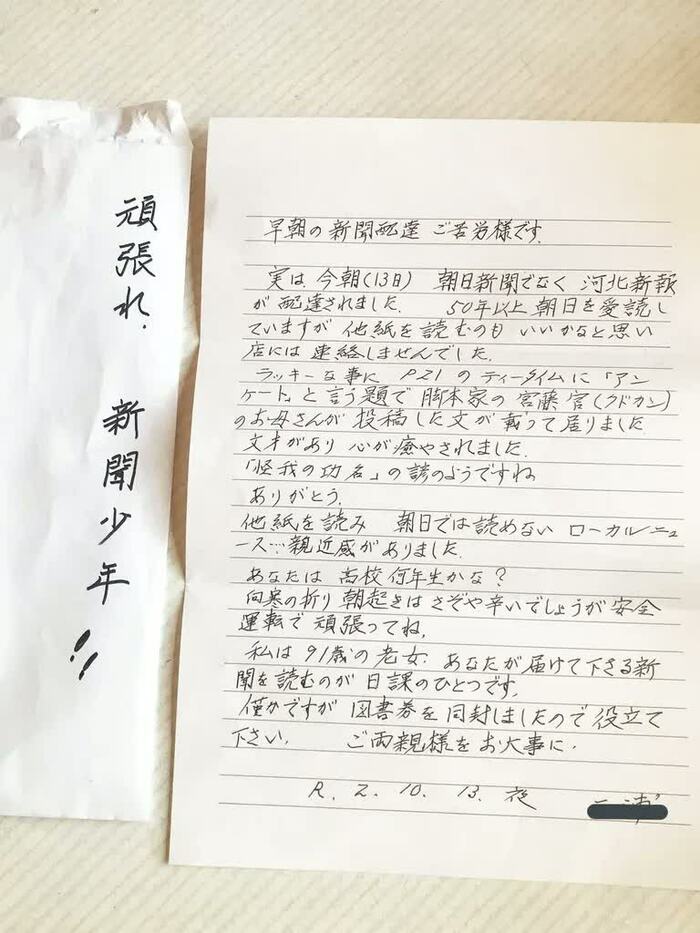 頑張れ、新聞少年!!
早朝の新聞配達 ご苦労様です。
実は、今朝(13日) 朝日新聞でなく 河北新報
が 配達されました。 50年以上 朝日を受読し
ていますが 他紙を読むのも いいかなと思い
店には 連絡しませんでした。
ラッキーな事に P21 の ティータイムに「アン
ケート」と言う題で 脚本家の 宮藤官(クドカン)
のお母さんが 投稿した文が 載って居りました
文才があり 心が癒やされました。
「怪我の功名」の諺のようですね
ありがとう。
他紙を読み 朝日では読めない ローカルニュ
ース…親近感がありました。
あなたは 高校何年生かな?
向寒の折り 朝起きは さぞや辛いでしょうが 安全
運転で 頑張ってね。
私は 91歳の老女. あなたが届けて下さる新
聞を読むのが 日課のひとつです。
僅かですが 図書券を 同封しましたので 役立て
下さい。 ご両親様を お大事に.
R. 2. 10. 13. 夜